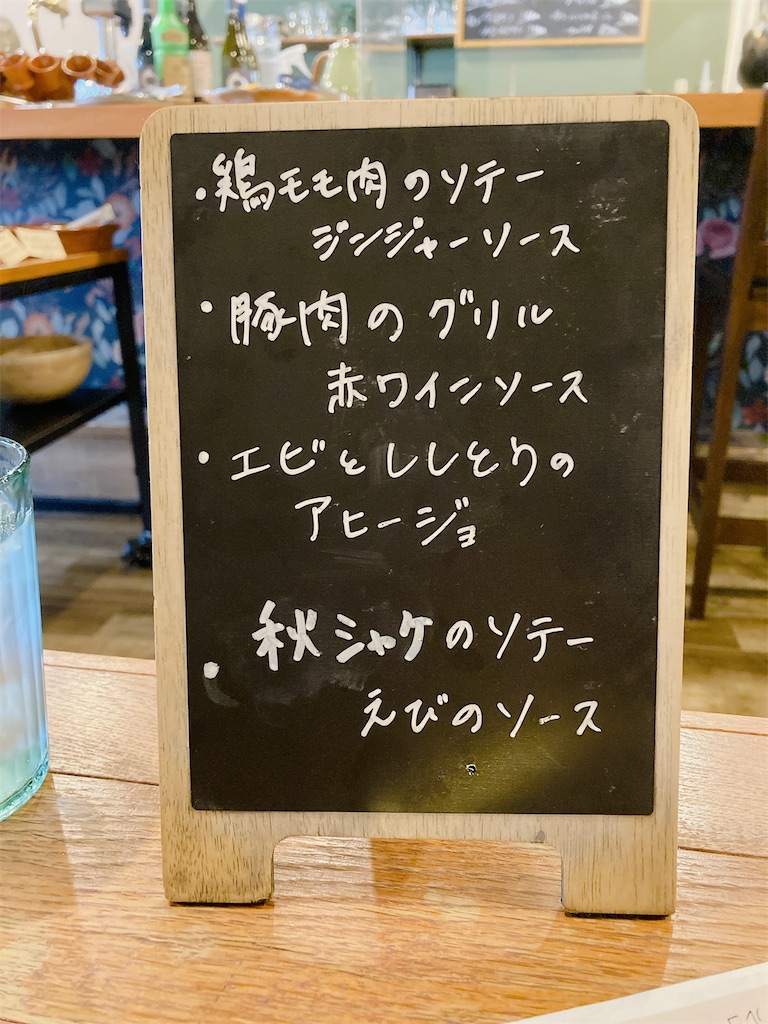 ・鶏モモ肉のソテー
ジンジャーソース
・豚肉のグリル
赤ワインソース
・エビとししとうの
アヒージョ
・秋シャケのソテー
えびのソース